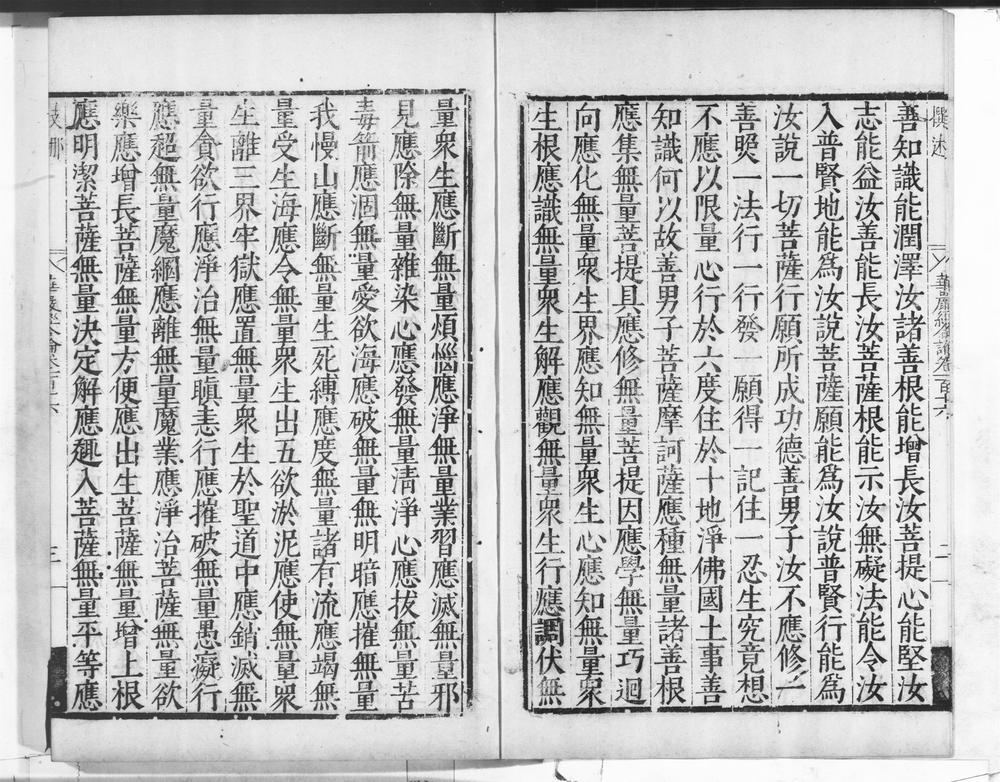 善知識能潤澤汝諸善根能增長汝菩提心能堅汝
志能益汝善能長汝菩薩根能示汝無礙法能令汝
入普賢地能為汝說菩薩願能為汝說普賢行能為
汝說一切菩薩行願所成功德善男子汝不應修一
善煛一法行一行發一願得一記住一忍生究竟想
不應以限量心行於六度住於十地淨佛國土事善
知識何以故善男子菩薩摩訶薩應種無量諸善根
應集無量菩提具應修無量菩提因應學無量巧迴
向應化無量衆生界應知無量衆生心應知無量衆
生根應識無量衆生解應觀無量衆生行應調伏無
量衆生應斷無量煩惱應淨無量業習應滅無量邪
見應除無量雜染心應發無量清淨心應拔無量苦
毒箭應涸無量愛欲海應破無量無明暗應摧無量
我慢山應斷無量生死縛應度無量諸有流應竭無
量受生海應令無量衆生出五欲淤泥應使無量衆
生離三界牢獄應置無量衆生於聖道中應銷滅無
量貪欲行應淨治無量瞋恚行應摧破無量愚癡行
應超無量魔網應離無量魔業應淨治菩薩無量欲
樂應增長菩薩無量方便應出生菩薩無量增上根
應明潔菩薩無量決定解應趣入菩薩無量平等應